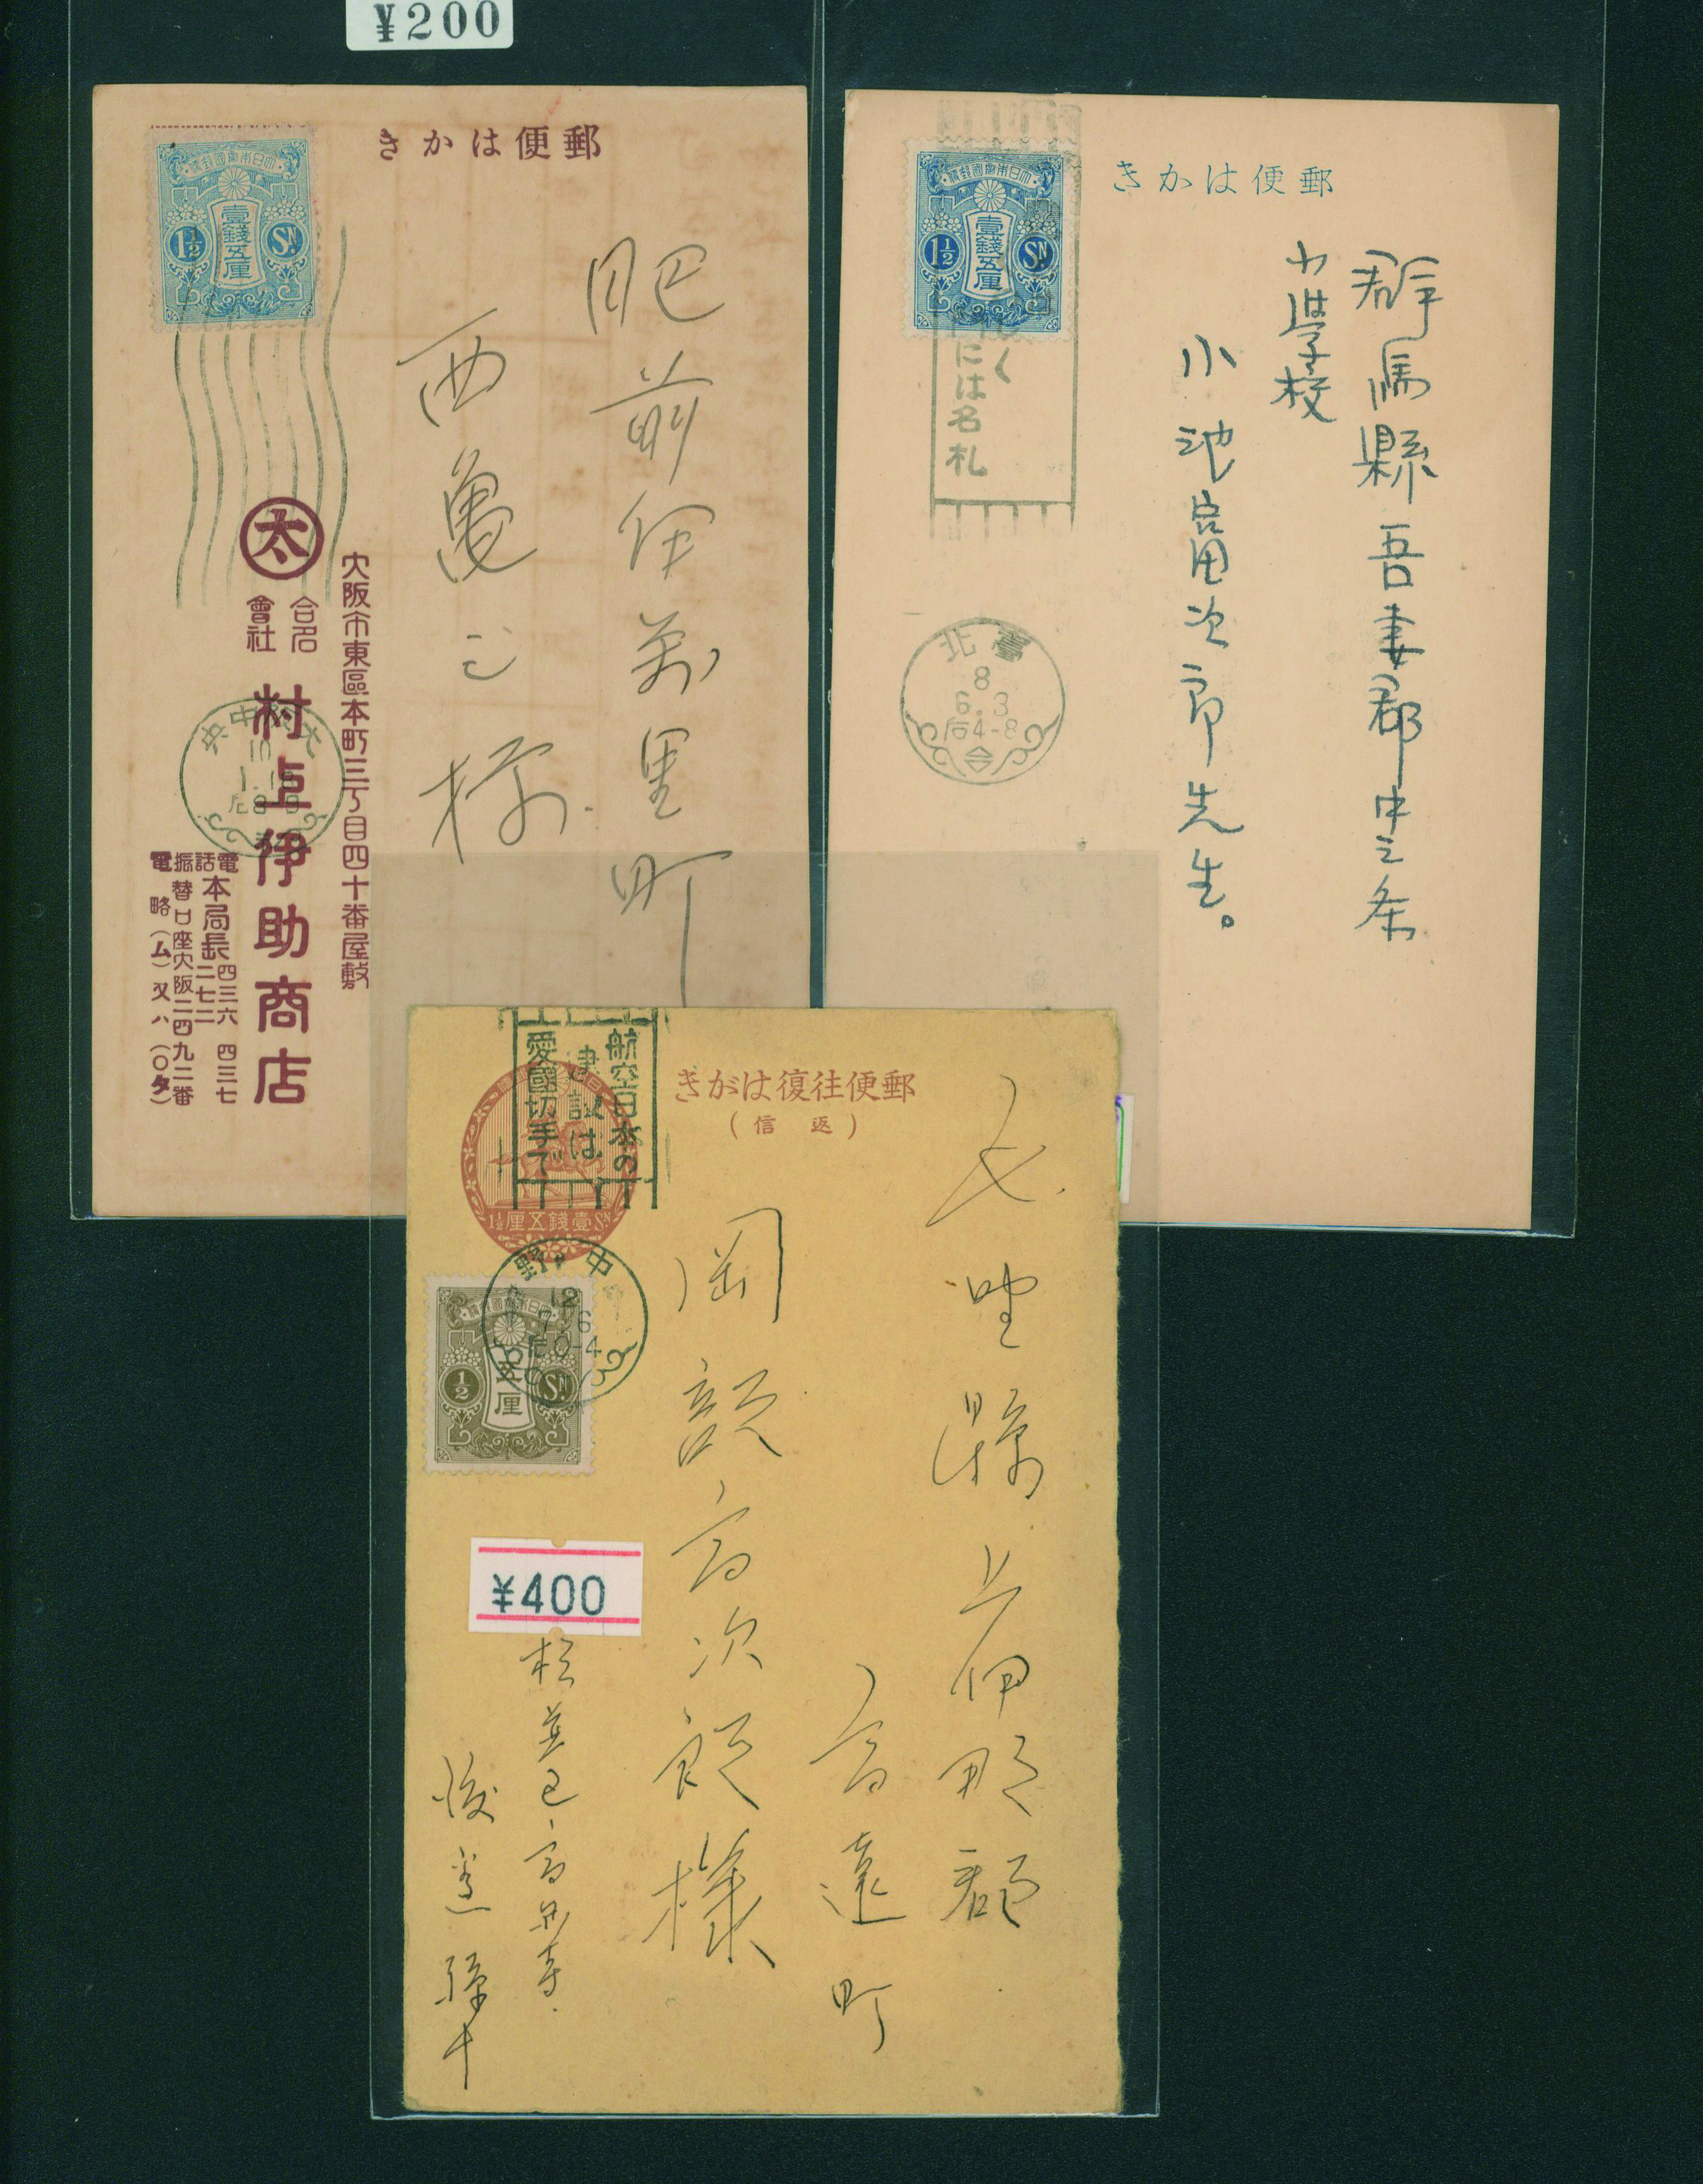 ¥200
きかは便郵
大日本帝國郵便
壹錢五厘
1½
SN
肥前伊萬里町
西亀之様
大阪市東區本町三丁目四十番屋敷
太
合名會社
村上伊助商店
電話本局長
四三六
四三七
二七二
振替口座大阪二四九二番
電略(ム)又ハ(〇タ)
中央
10
1.18
后8-9
きかは便郵
大日本帝國郵便
壹錢五厘
1½
SN
には名札
北臺
8
6.3
后4-8
群馬縣吾妻郡中之条
小学校
小池富次郎先生。
きがは復往便郵
(信返)
航空日本の
建設は
愛國切手で
1½厘五錢壹SN
野中
12
7.6
后0-4
五厘
½
SN
縣上伊那郡
高遠町
高次郎様
¥400